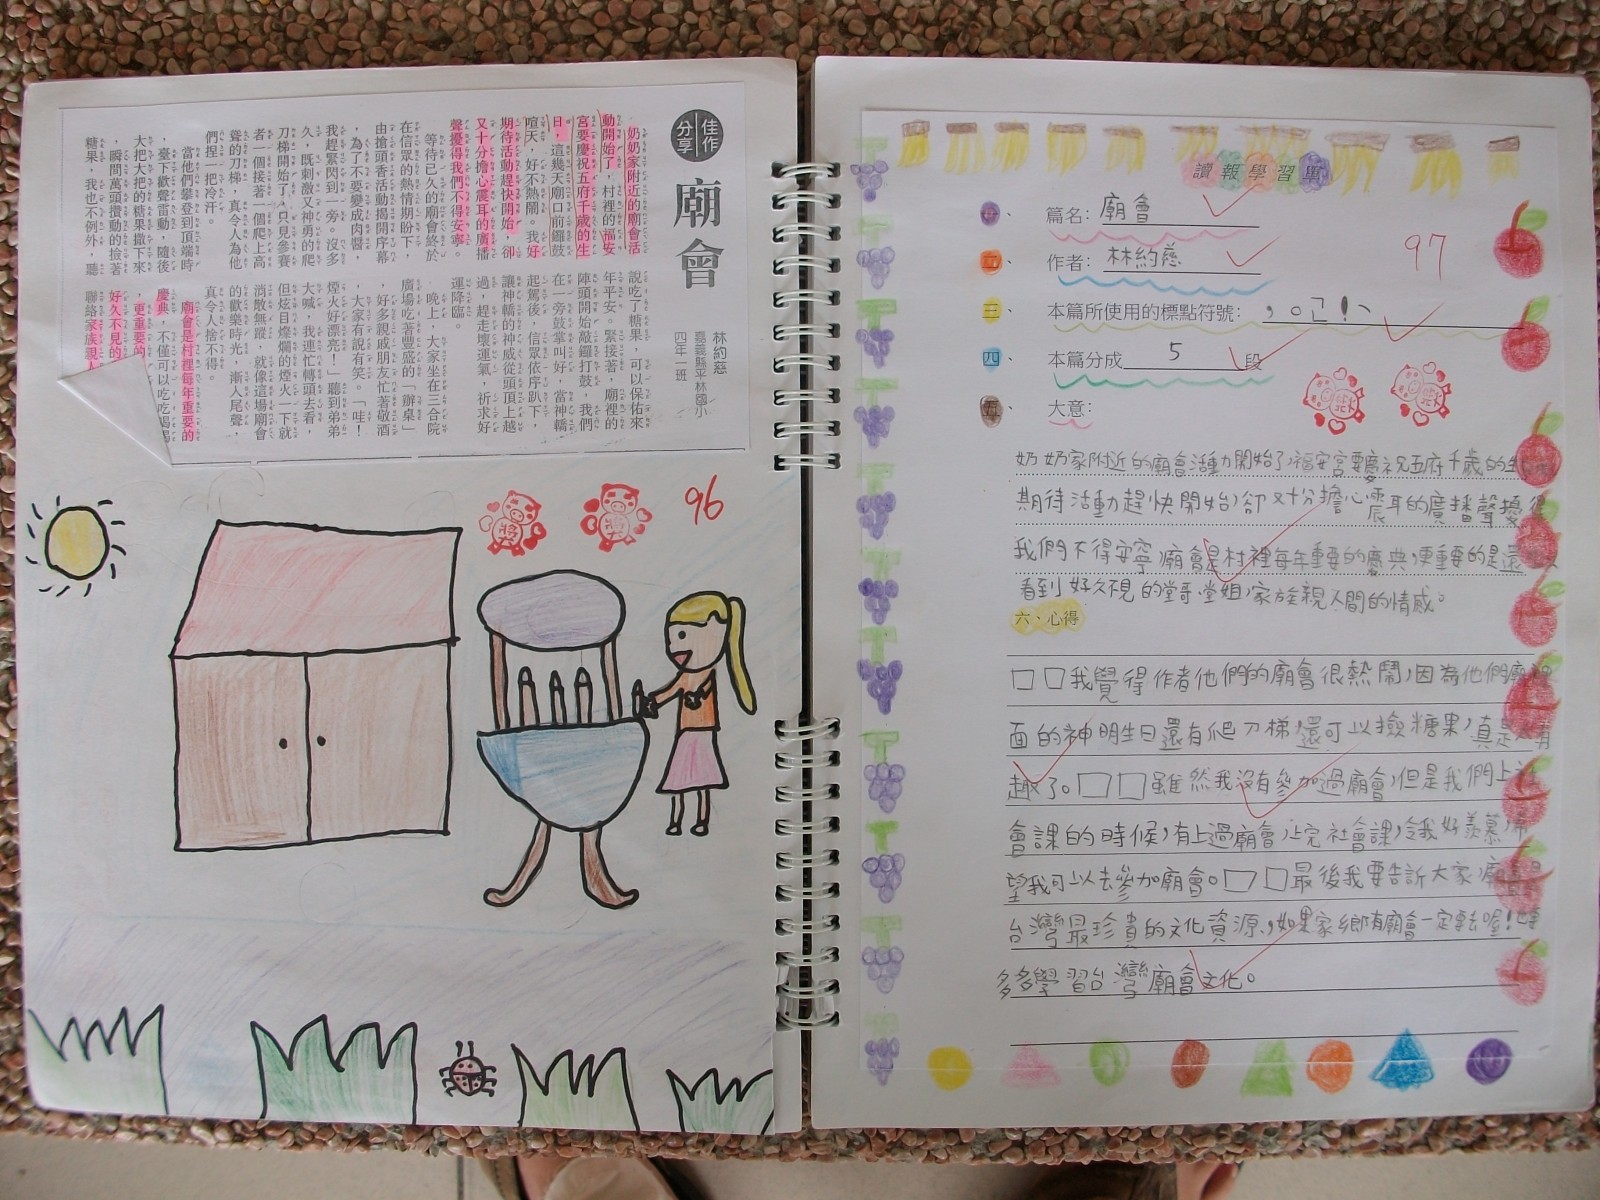 佳作
分享
廟會
林約慈
嘉義縣平林國小
四年一班
奶奶家附近的廟會活
動開始了，村裡的福安
宮要慶祝五府千歲的生
日，這幾天廟口前鑼鼓
喧天，好不熱鬧。我好
期待活動趕快開始，卻
又十分擔心震耳的廣播
聲擾得我們不得安寧。
等待已久的廟會終於
在信眾的熱情期盼下，
由搶頭香活動揭開序幕
，為了不要變成肉醬，
我趕緊閃到一旁。沒多
久，既刺激又神勇的爬
刀梯開始了，只見參賽
者一個接著一個爬上高
聳的刀梯，真令人為他
們捏一把冷汗。
當他們攀登到頂端時
，臺下歡聲雷動，隨後
大把大把的糖果撒下來
，瞬間萬頭攢動的撿著
糖果，我也不例外，聽
說吃了糖果，可以保佑來
年平安。緊接著，廟裡的
陣頭開始敲鑼打鼓，我們
在一旁鼓掌叫好，當神轎
起駕後，信眾依序趴下，
讓神轎的神威從頭頂上越
過，趕走壞運氣，祈求好
運降臨。
晚上，大家坐在三合院
廣場吃著豐盛的「辦桌」
，好多親戚朋友忙著敬酒
，大家有說有笑。「哇！
煙火好漂亮！」聽到弟弟
大喊，我連忙轉頭去看，
但炫目燦爛的煙火一下就
消散無蹤，就像這場廟會
的歡樂時光，漸入尾聲，
真令人捨不得。
廟會是村裡每年重要的
慶典，不僅可以吃吃喝喝
，更重要的
好久不見的
聯絡家族親人
96
讀報學習單
一、篇名：廟會
97
二、作者：林約慈
三、本篇所使用的標點符號：，。「！、
四、本篇分成5段
五、大意：
奶奶家附近的廟會活動開始了，福安宮要慶祝五府千歲的生
期待活動趕快開始，卻又十分擔心震耳的廣播聲擾得
我們不得安寧，廟會是村裡每年重要的慶典，更重要的是還
看到好久不見的堂哥、堂姐，家族親人間的情感。
六、心得
□□我覺得作者他們的廟會很熱鬧，因為他們廟裡
面的神明生日還有爬刀梯，還可以撿糖果，真是
趣了。□□雖然我沒有參加過廟會，但是我們上社
會課的時候，有上過廟會，上完社會課，令我好羨慕，希
望我可以去參加廟會。□□最後我要告訴大家，廟會是
台灣最珍貴的文化資源，如果家鄉有廟會一定要去喔！
多多學習台灣廟會文化。